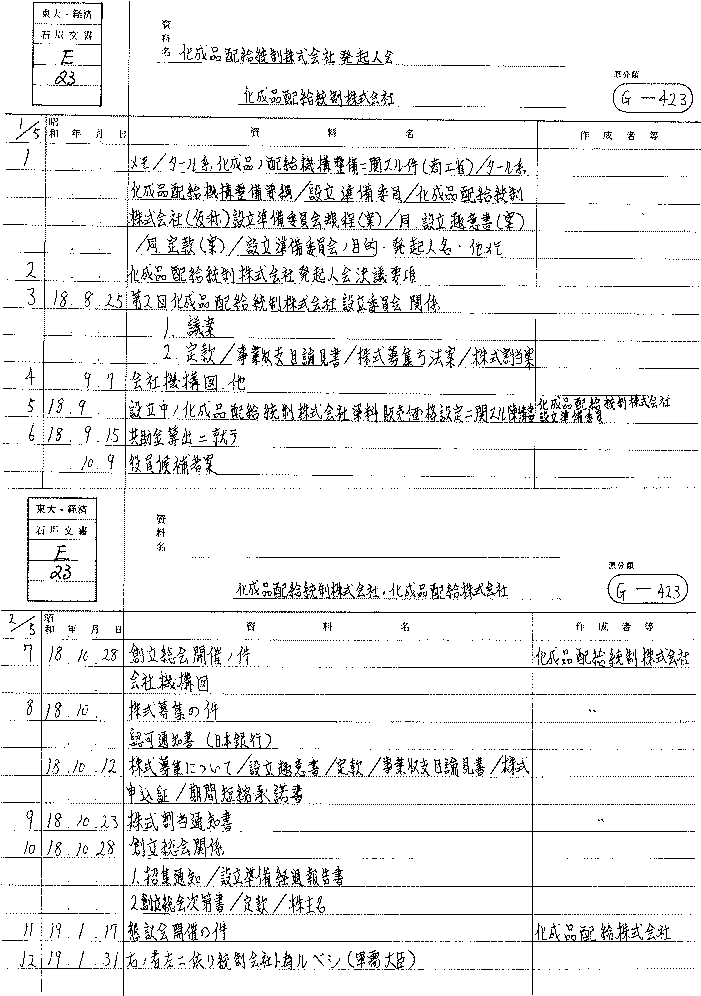 東大・経済
石川文書
E
23
資料名 化成品配給統制株式会社発起人会
化成品配給統制株式会社
原分類
G-423
1/5 昭和 年 月 日 資料名 作成者等
1 メモ/タール系化成品ノ配給機構整備ニ関スル件(商工省)/タール系
化成品配給機構整備要綱/設立準備委員/化成品配給統制
株式会社(仮称)設立準備委員会規程(案)/同 設立趣意書(案)
/同 定款(案)/設立準備委員会ノ目的・発起人名・他
2 化成品配給統制株式会社発起人会決議要項
3 18. 8. 25 第2回化成品配給統制株式会社設立委員会関係
1. 議案
2. 定款/事業収支目論見書/株式募集方法案/株式割当案
4 9 7 会社機構図 他
5 18. 9 設立中ノ化成品配給統制株式会社 販売価格設定ニ関スル陳情書 化成品配給統制株式会社
設立準備委員
6 18. 9. 15 共助金算出ニ就テ
10 9 役員候補者案
東大・経済
石川文書
E
23
資料名
原分類
化成品配給統制株式会社・化成品配給株式会社
G-423
2/5 昭和 年 月 日 資料名 作成者等
7 18. 10. 28 創立総会開催ノ件 化成品配給統制株式会社
会社機構図
8 18. 10 株式募集の件 〃
認可通知書(日本銀行)
18. 10. 12 株式募集について/設立趣意書/定款/事業収支目論見書/株式
申込証/期間短縮承諾書
9 18. 10. 23 株式割当通知書 〃
10 18. 10. 28 創立総会関係
1. 招集通知/設立準備経過報告書
2. 創立総会次第書/定款/株主名
11 19. 1. 17 懇談会開催の件 化成品配給株式会社
12 19. 1. 31 右ノ者左ニ依リ統制会社ト為ルベシ(軍需大臣)